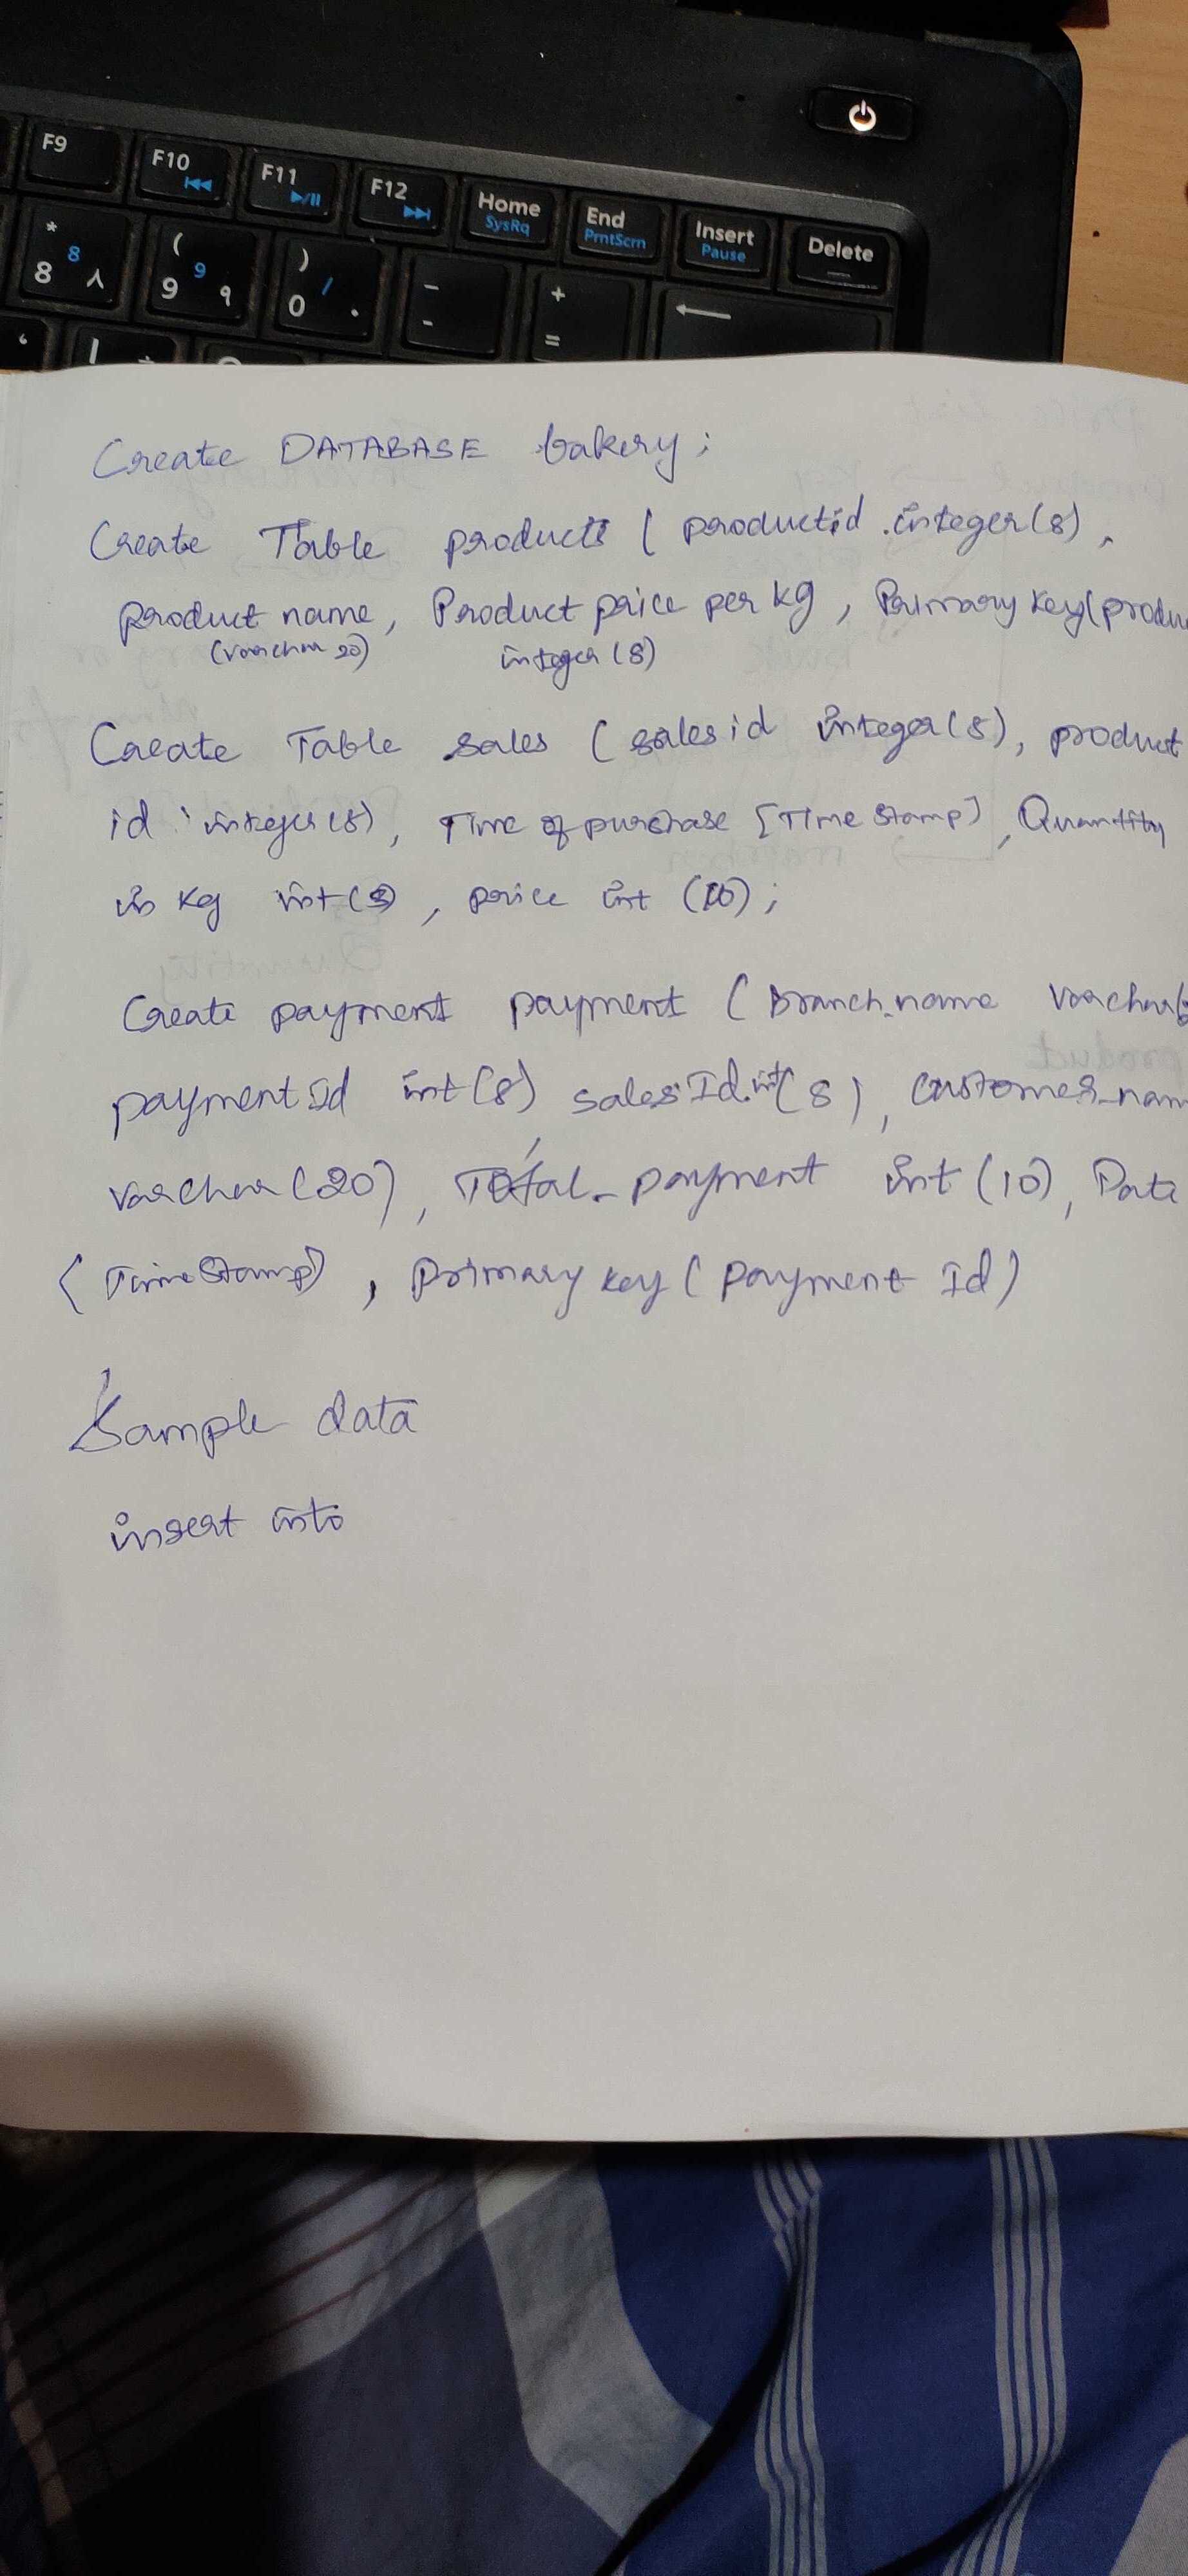 F9 F10 F11 F12 Home SysRq End PrntScrn Insert Pause Delete
* 8 8 ٨ ( 9 9 ٩ ) 0 / . - - + =
Create DATABASE bakery;
Create Table products ( productid integer(8),
product name, Product price per kg, Primary key(produc
(varchar 20) integer (8)
Create Table sales ( sales id integer(8), product
id integer(8), Time of purchase [Time Stamp], Quantity
in kg int( , price int (10);
Create payment payment ( Branch_name varchar(
payment Id int(8) sales Id int(8), customer_nam
varchar(20), Total_payment int (10), Date
(TimeStamp), Primary key ( payment Id)
Sample data
insert into